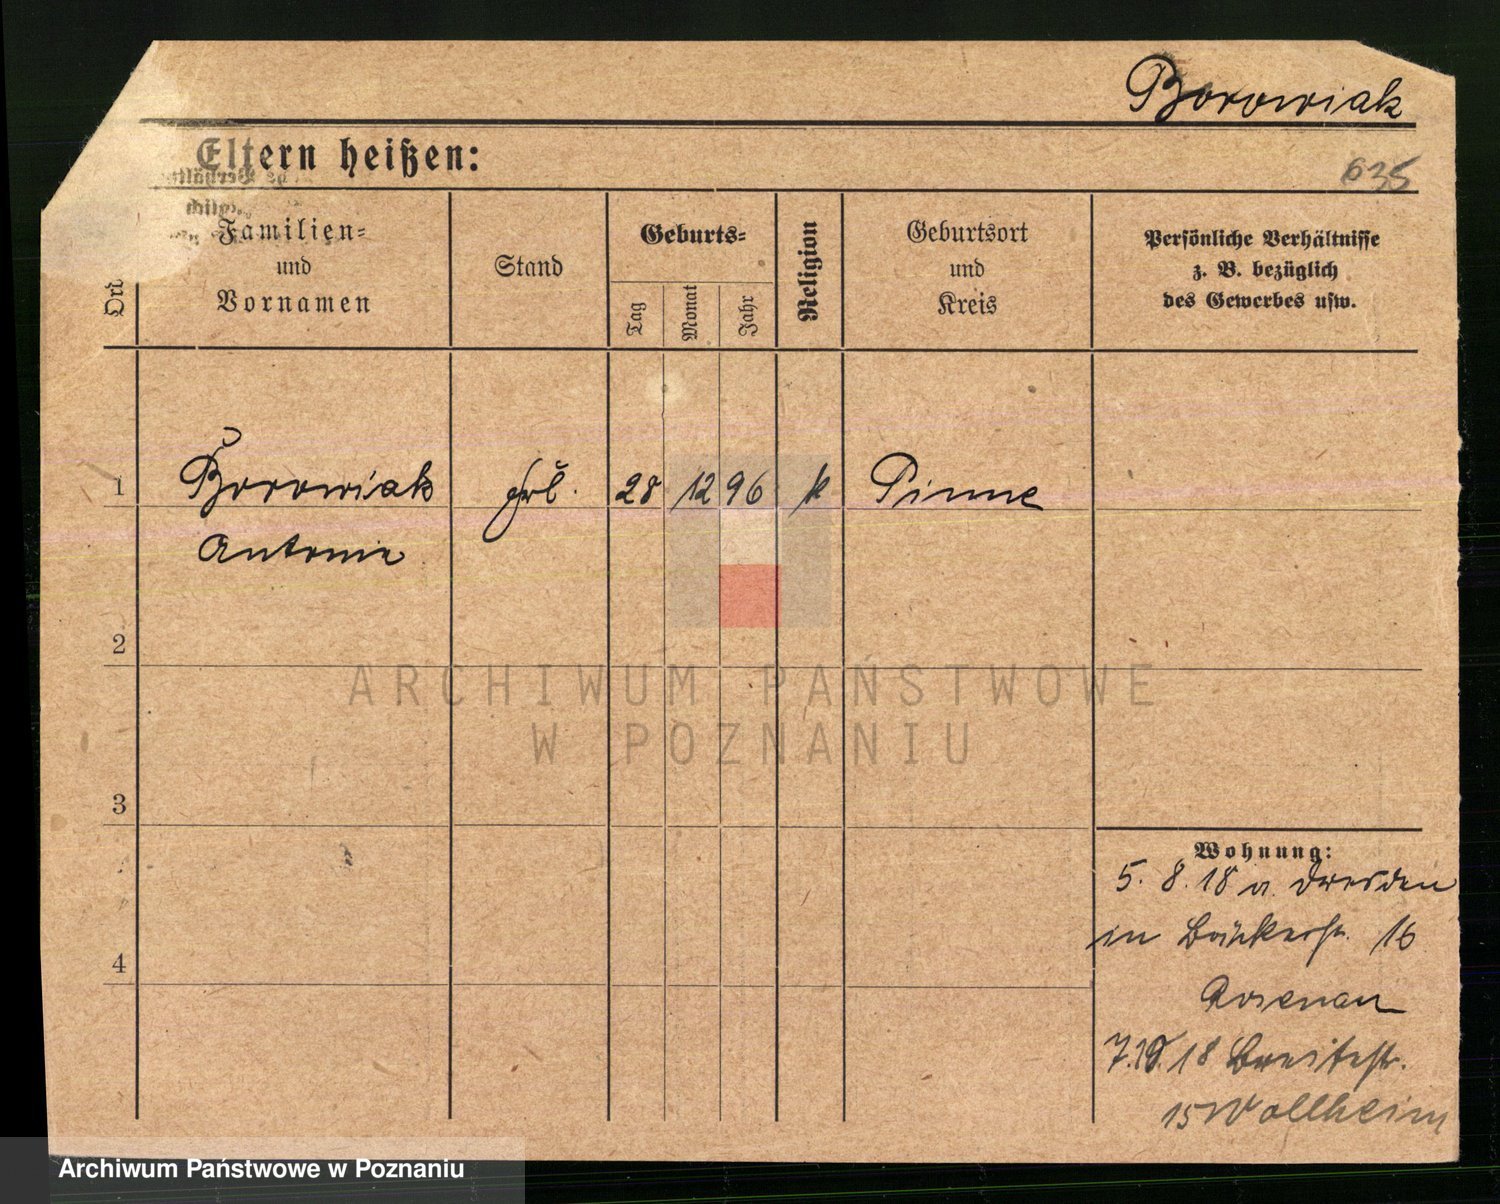 Borowiak
Eltern heißen:
635
Ort
Familien-
und
Vornamen
Stand
Geburts-
Tag
Monat
Jahr
Religion
Geburtsort
und
Kreis
Persönliche Verhältnisse
z. B. bezüglich
des Gewerbes usw.
1 Borowiak Frl. 28 12 96 k Pinne
Antonie
2
ARCHIWUM PAŃSTWOWE
W POZNANIU
3
Wohnung:
5. 8. 18 a. Dresden
in Bäckerstr. 16
4
Rosenau
7.10.18 Breitestr.
15 Wollheim
Archiwum Państwowe w Poznaniu